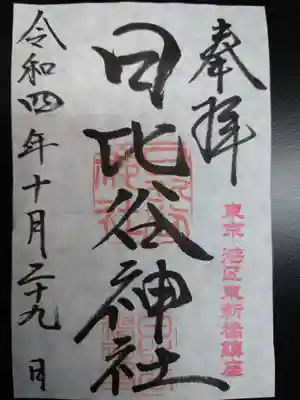 奉拝
東京 港区東新橋鎮座
日比谷神社
令和四年十月二十九日